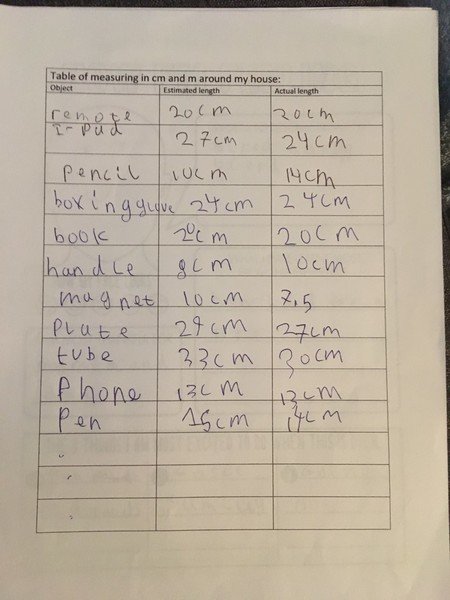 Table of measuring in cm and m around my house:
Object Estimated length Actual length
remote 20cm 20cm
I-Pad 27cm 24cm
Pencil 10cm 14cm
boxing glove 24cm 24cm
book 20cm 20cm
handle 8cm 10cm
magnet 10cm 7,5
Plate 29cm 27cm
tube 33cm 30cm
Phone 13cm 13cm
Pen 15cm 14cm